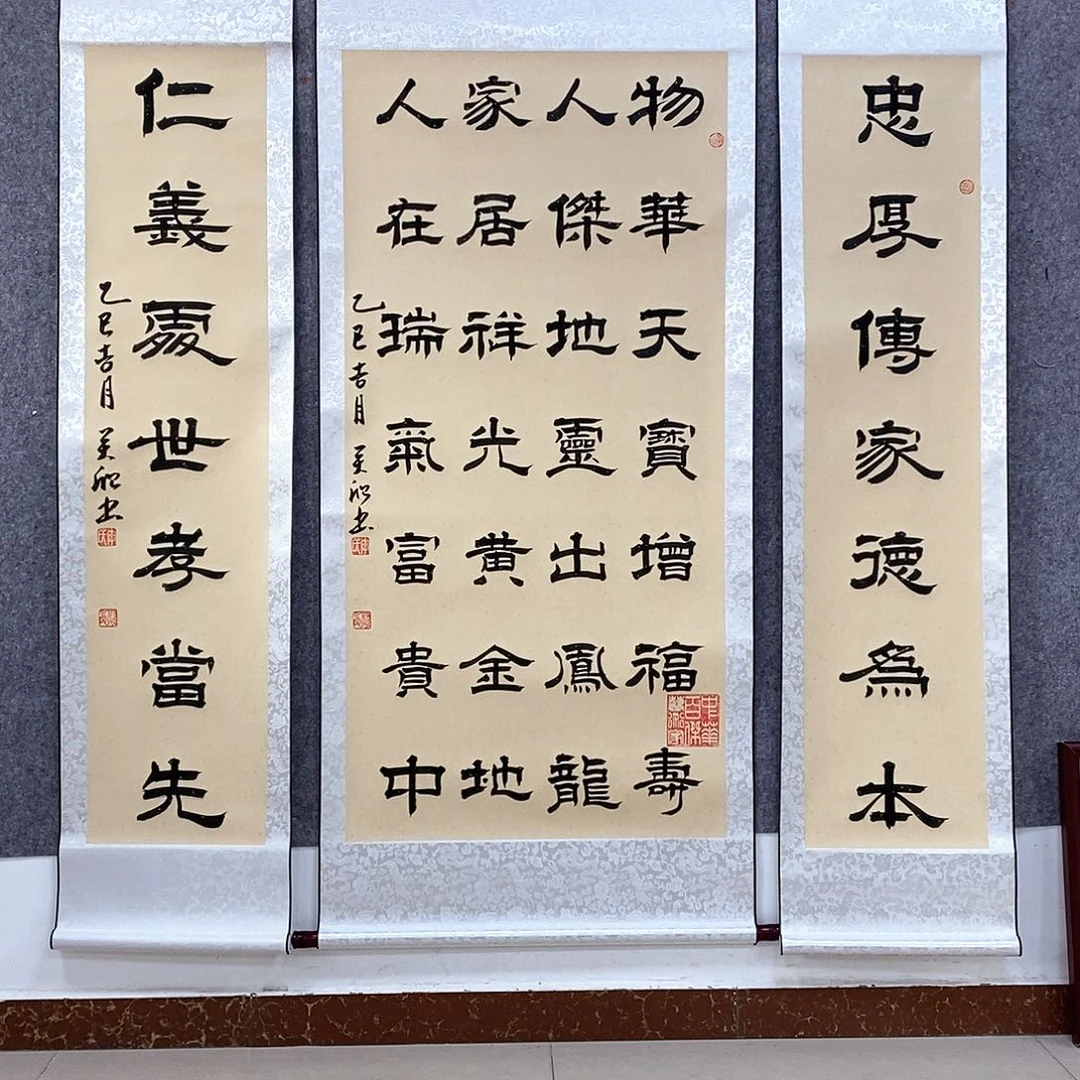 忠厚傳家德為本
物華天寶增福壽
人傑地靈出鳳龍
家居祥光黃金地
人在瑞氣富貴中
乙巳吉月
仁義處世孝當先
乙巳吉月